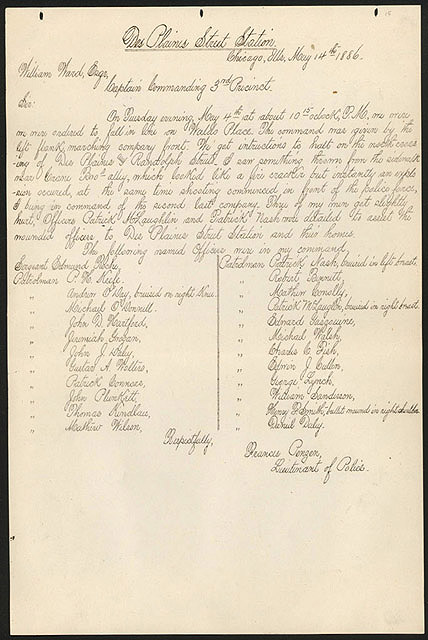 Des Plaines Street Station.
Chicago, Ills, May 14th, 1886.
William Ward, Esqr,
Captain Commanding 3rd Precinct.
Sir:
On Tuesday evening, May 4th at about 10 15 oclock, P.M., we were
ordered to fall in line on Waldo Place. The command was given by the
left flank, marching company front. We got intructions to halt on the north cross-
ing of Des Plaines & Randolph Street. I saw something thrown from the sidewalk
near Crane Bros. alley, which looked like a fire cracker but instantly an explo-
sion occured, at the same time shooting commenced in front of the police force,
I being in command of the second last company. Three of my men got slightly
hurt, Officers Patrick McLaughlin and Patrick Nash were detailed to assist the
wounded officers to Des Plaines Street Station and their homes.
The following named Officers were in my command,
Sergeant Edmund Roche,
Patrolman P. H. Keefe.
" Andrew O'Day, bruised on right knee.
" Michael O'Donnell.
" John D. Hartford,
" Jeremiah Grogan,
" John J. Daly.
" Gustav A. Walters,
" Patrick Connors,
" John Plunkett,
" Thomas Kindlau,
" Mathew Wilson,
Patrolman Patrick Nash, bruised in left breast.
" Robert Bennett,
" Mathew Connolly,
" Patrick McLaughlin, bruised in right breast.
" Edward Gasquoine,
" Michael Walsh,
" Charles C. Fish,
" Edwin J. Cullen,
" George Lynch,
" William Sanderson,
" Henry F. Smith, bullet wound in right shoulder
" Daniel Daly.
Respectfully,
Francis Penzen,
Lieutenant of Police.